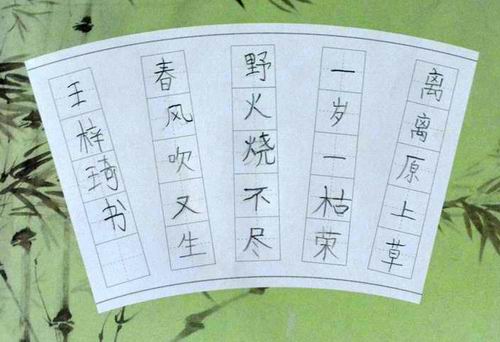 离离原上草
一岁一枯荣
野火烧不尽
春风吹又生
王梓琦书